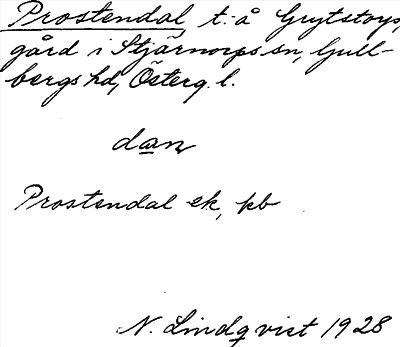 Prostendal t. å Grytstorps
gård i Stjärnorps sn, Gull-
bergs hd, Österg. l.
dan
Prostendal ek, pb
N. Lindqvist 1928